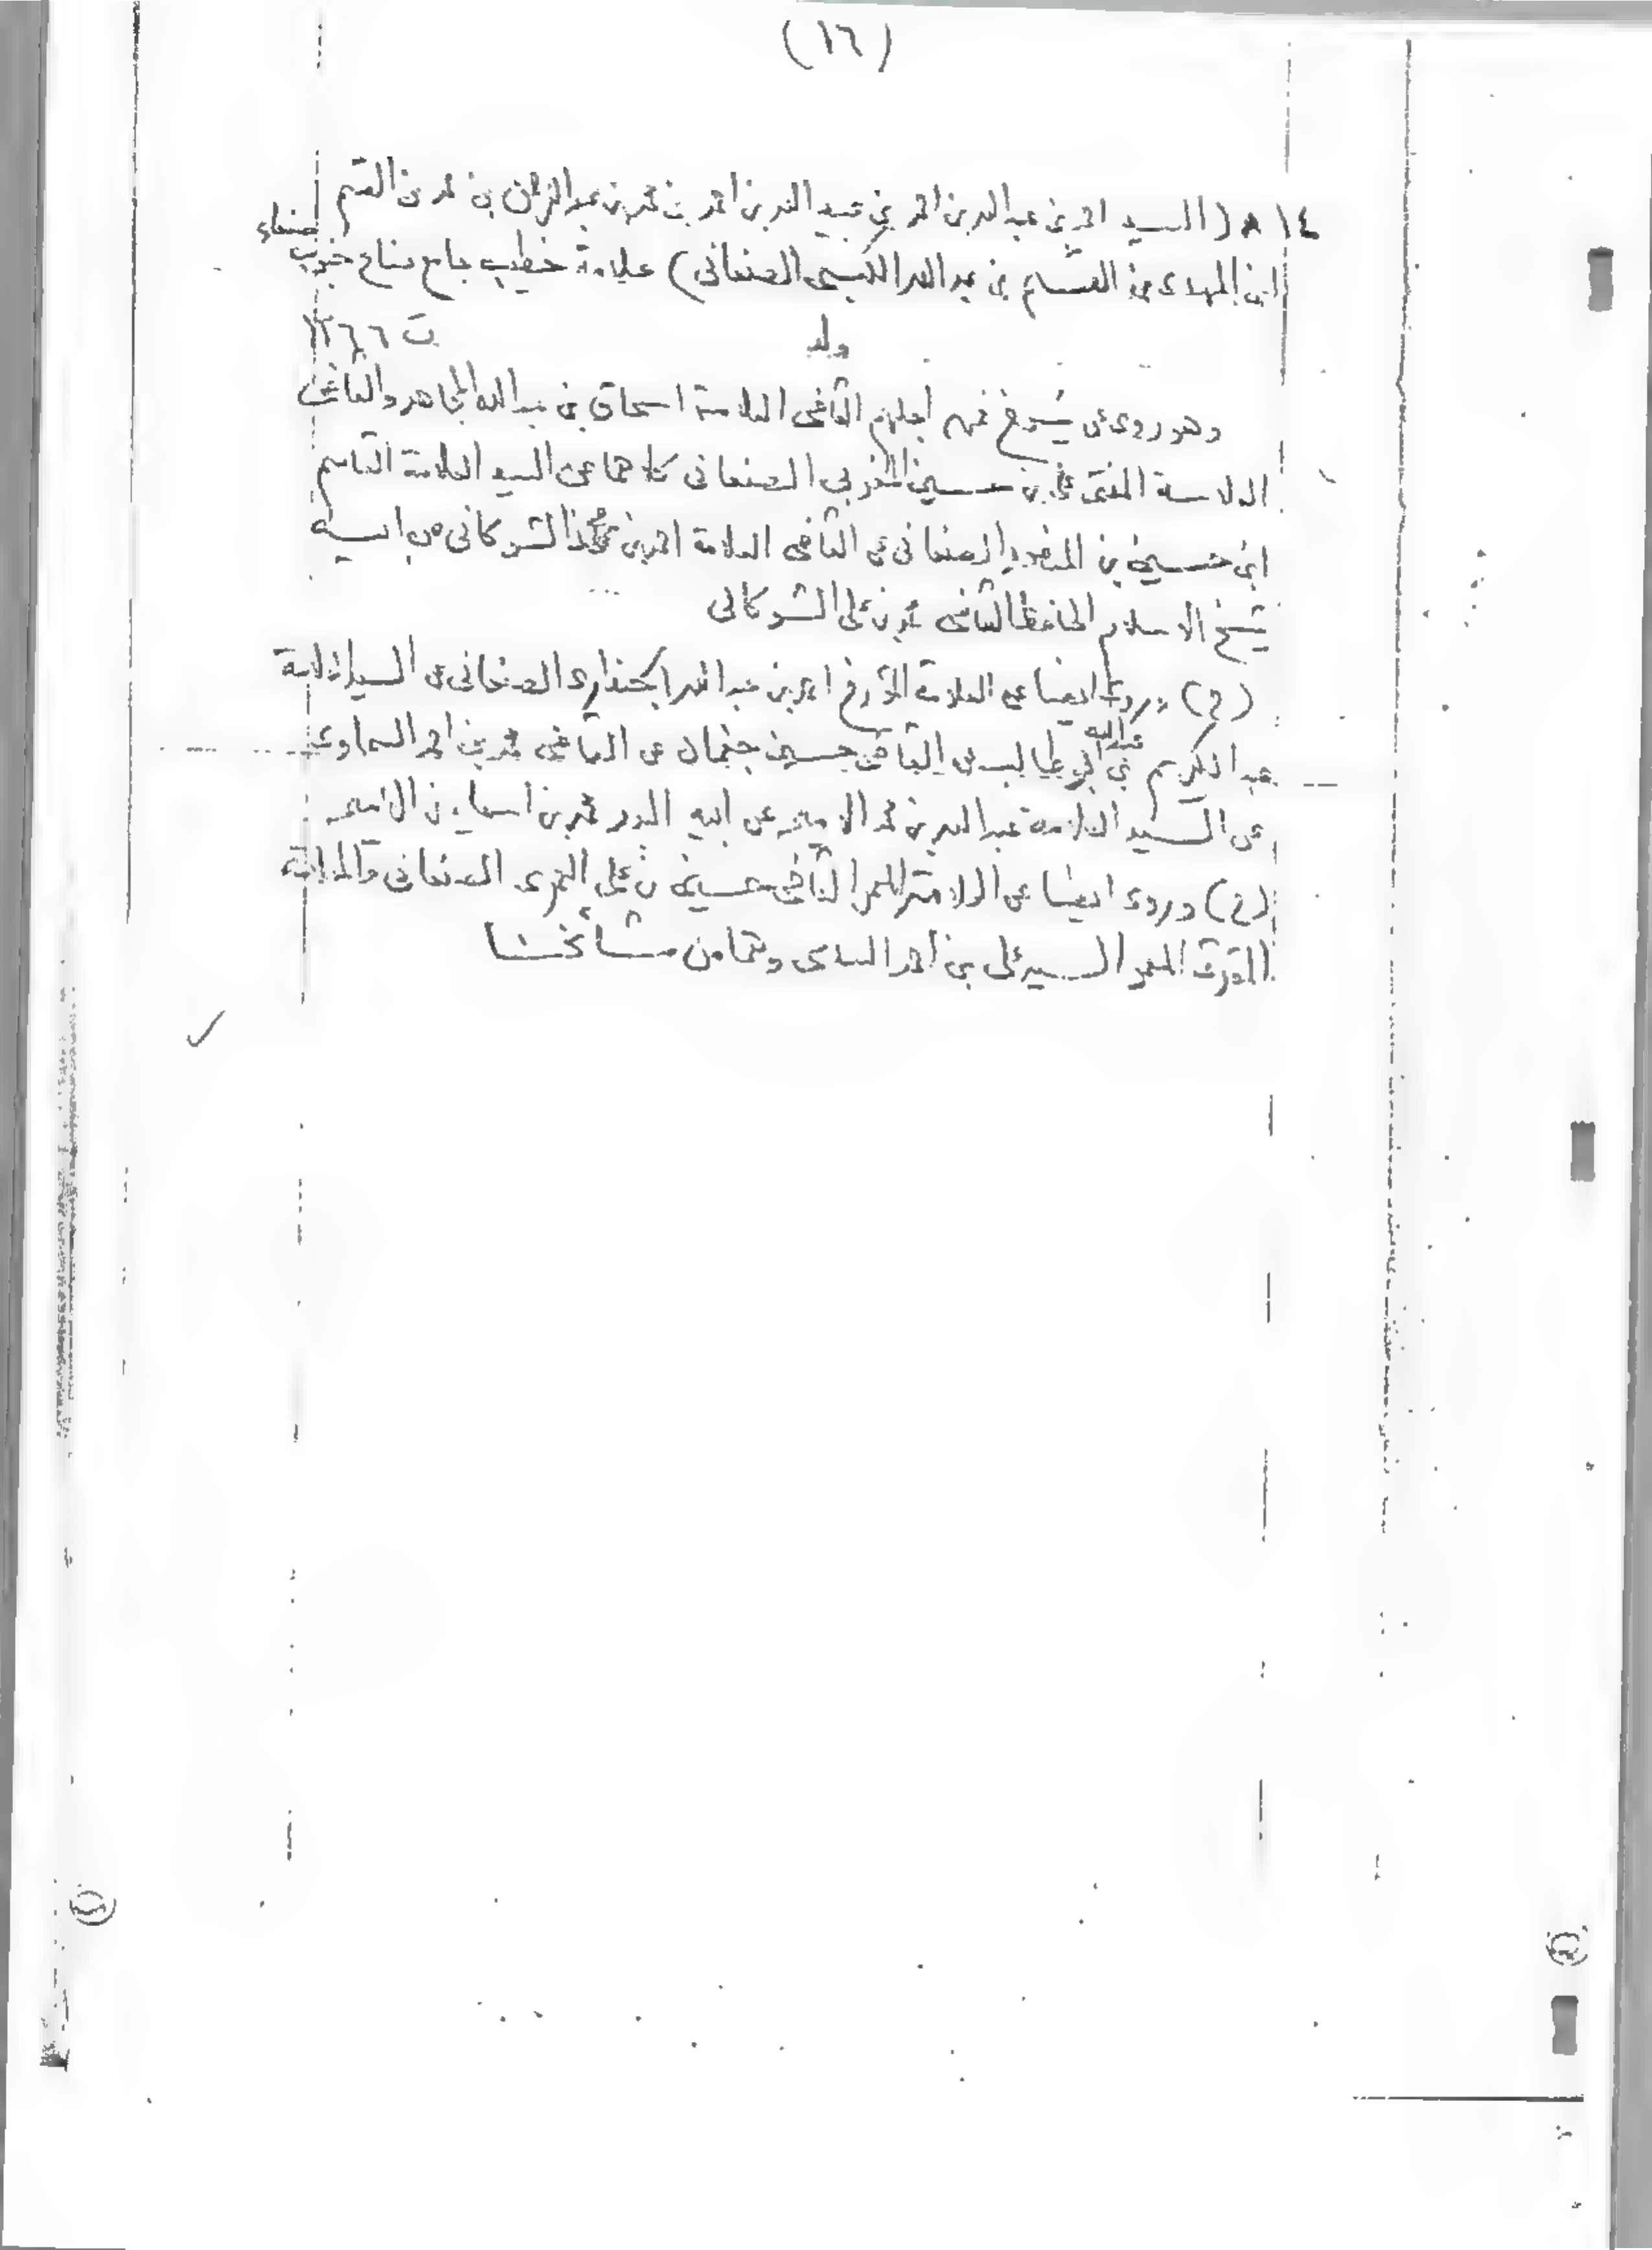 (١٦)
١٤ * (السيد احمد بن عبدالله بن احمد بن عبد الله بن احمد بن محمد بن عبدالرحمن بن محمد بن القسم
ابن المهدي بن القسم بن عبدالله الكبسي الصنعاني) علامة خطيب جامع مناع جنوب صنعاء
ولد ت
وهو روى عن شيوخ منهم اجلهم القاضي العلامة اسحاق بن عبدالله المجاهد والقاضي
العلامة المفتي علي بن حسين المغربي الصنعاني كلاهما عن السيد العلامة القاسم
ابن حسين بن المنصور الصنعاني عن القاضي العلامة احمد بن محمد الشوكاني عن ابيه
شيخ الاسلام الحافظ القاضي محمد بن علي الشوكاني
(ح) وروى ايضا عن العلامة المؤرخ احمد بن عبد الله الجنداري الصنعاني عن السيد العلامة
عبد الكريم بن عبدالله ابو طالب عن القاضي حسين جغمان عن القاضي محمد بن احمد السماوي
عن السيد العلامة عبدالله بن محمد الامير عن ابيه البدر محمد بن اسماعيل الامير
(ح) وروى ايضا عن العلامة المعمر القاضي حسين بن علي العمري الصنعاني والعلامة
المعمر السيد علي بن احمد السدمي وهما من مشائخنا